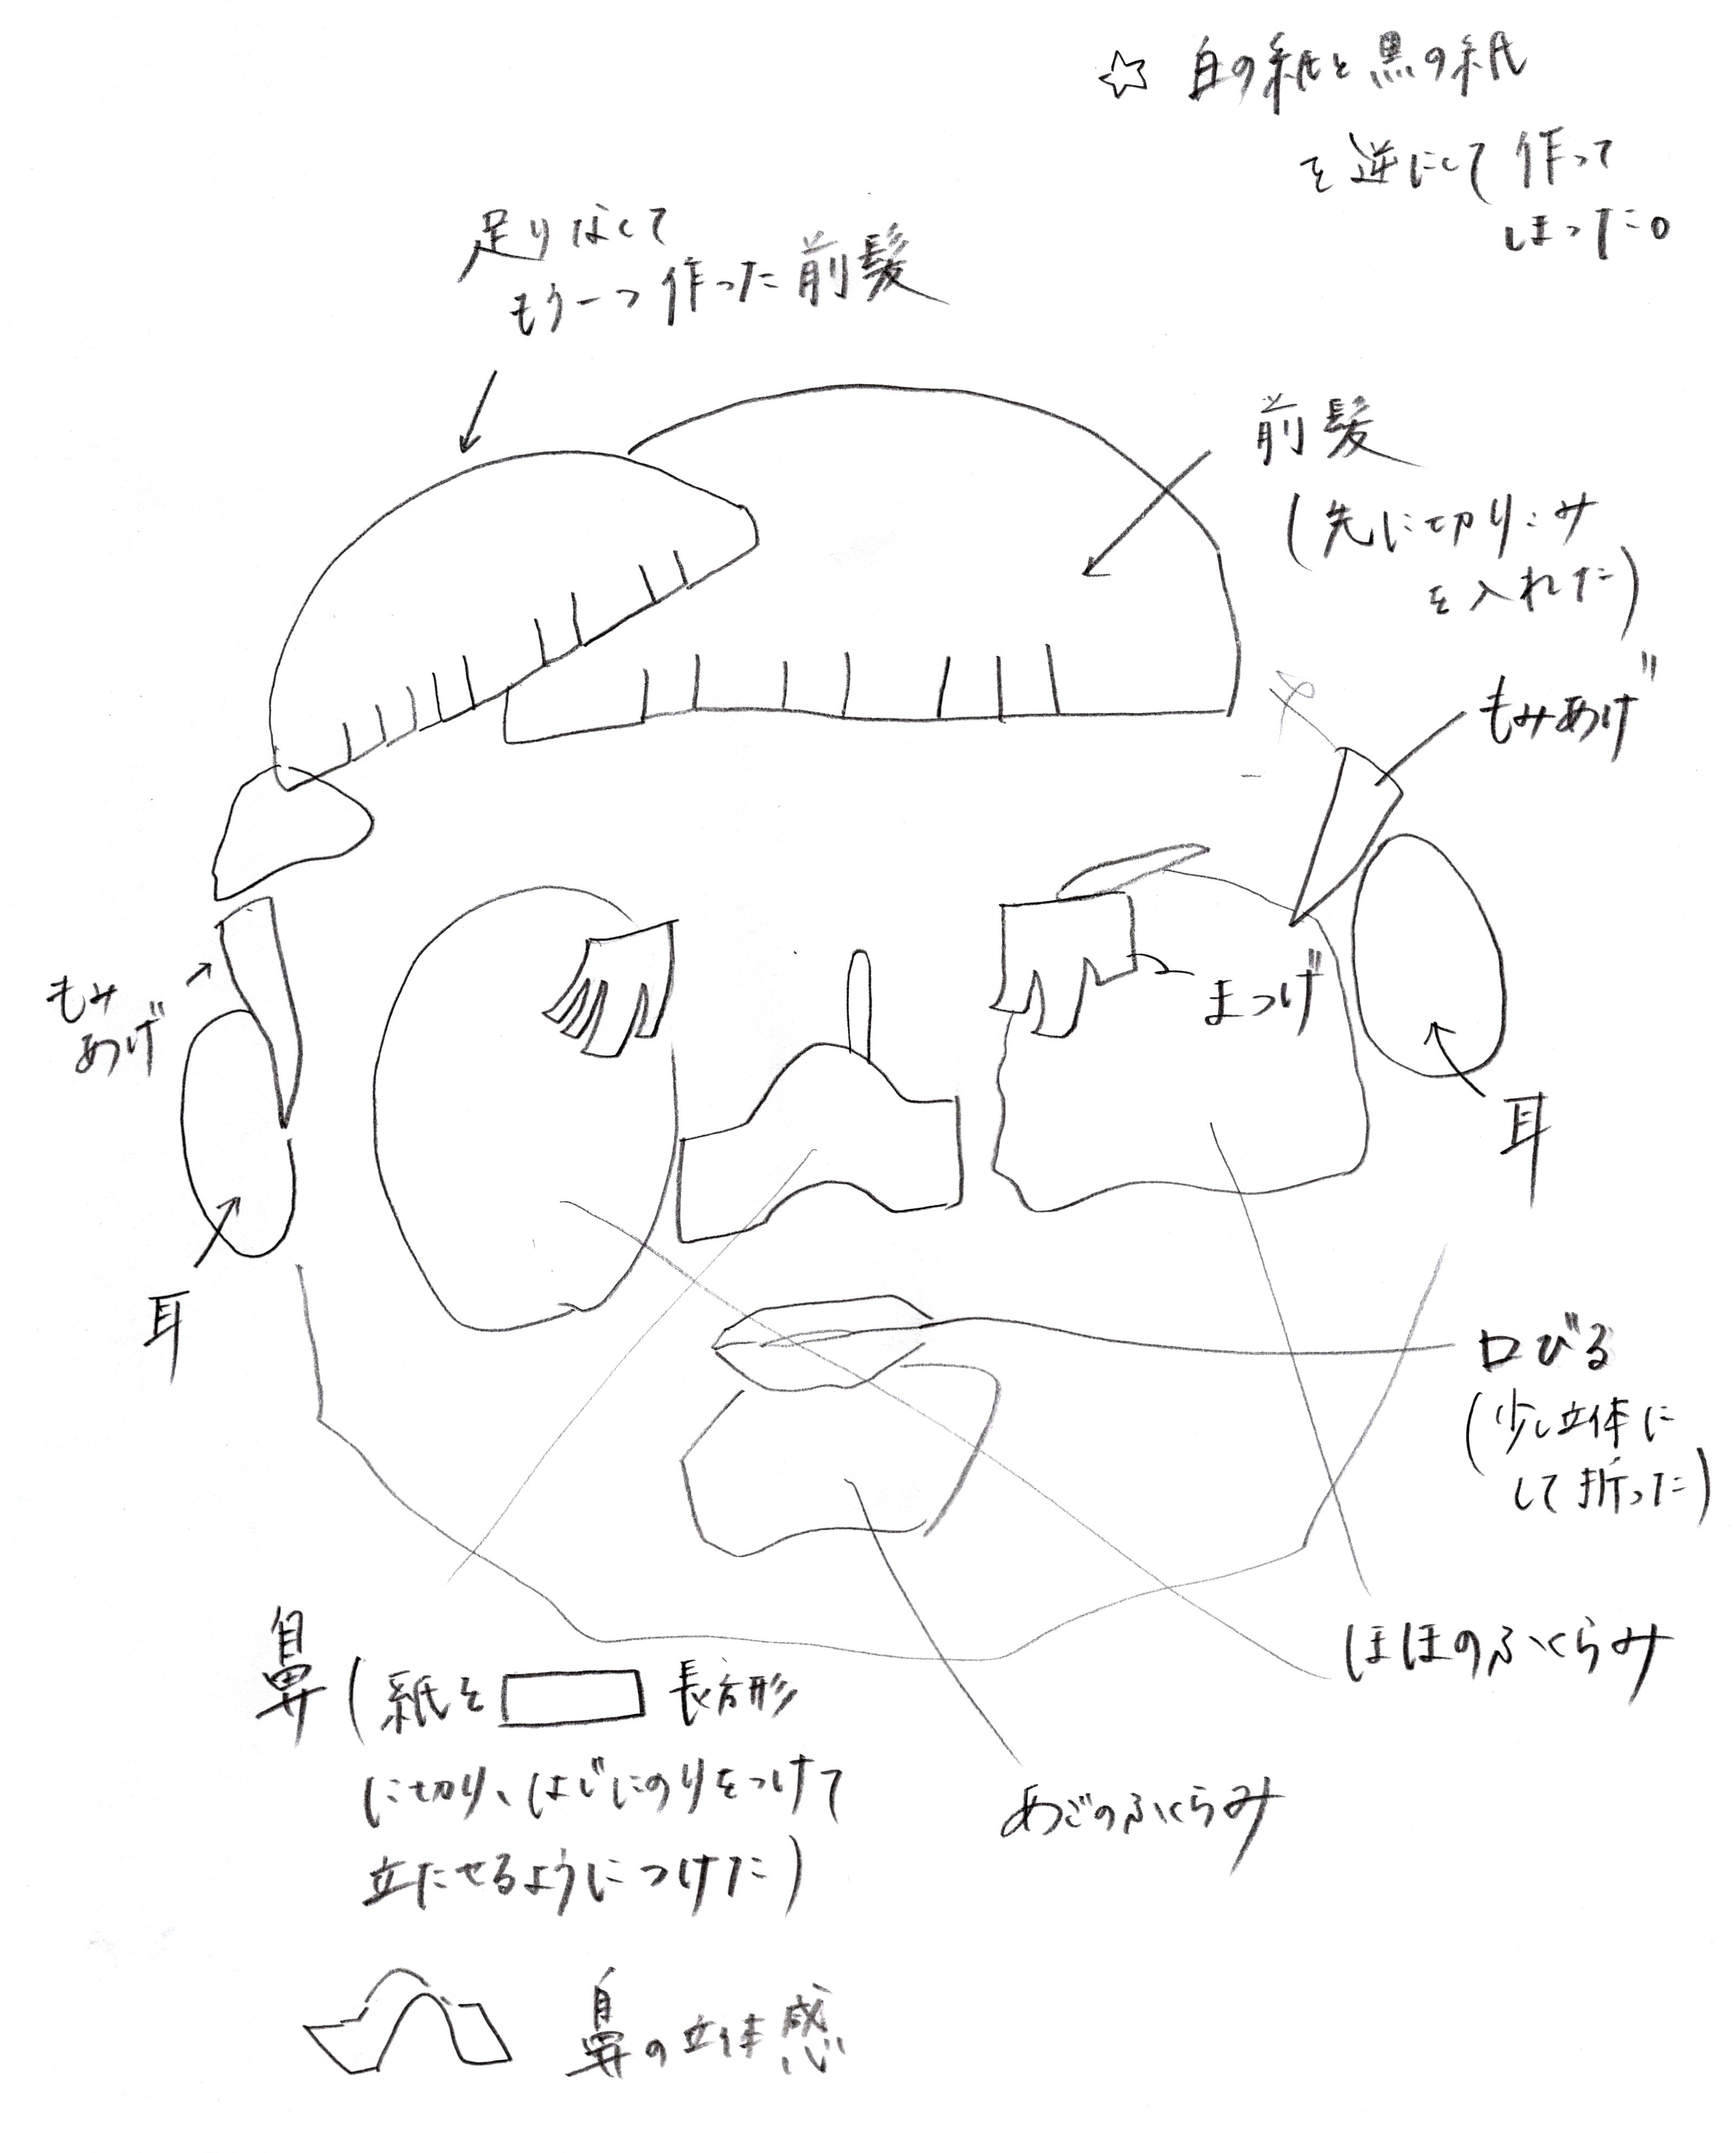 ☆ 白の紙と黒の紙
を逆にして作って
しまった。
足りなくて
もう一つ作った前髪
前髪
(先に切りコサ
を入れた)
もみあげ
もみ
あげ
まつげ
耳
耳
口びる
(少し立体に
して折った)
ほほのふくらみ
あごのふくらみ
鼻(紙を 長方形
に切り、はじにのりをつけて
立たせるようにつけた)
鼻の立体感